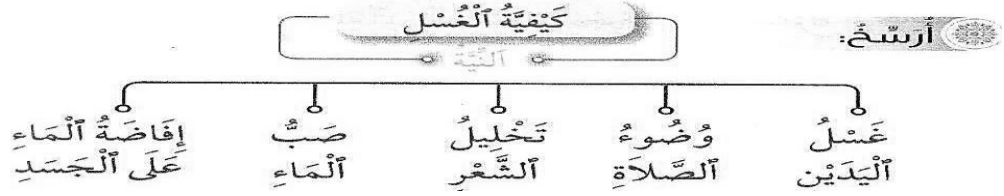 أُرَسِّخُ:
كَيْفِيَّةُ ٱلْغُسْلِ
ٱلنِّيَّةُ
غَسْلُ ٱلْيَدَيْنِ
وُضُوءُ ٱلصَّلاَةِ
تَخْلِيلُ ٱلشَّعْرِ
صَبُّ ٱلْمَاءِ
إِفَاضَةُ ٱلْمَاءِ عَلَى ٱلْجَسَدِ